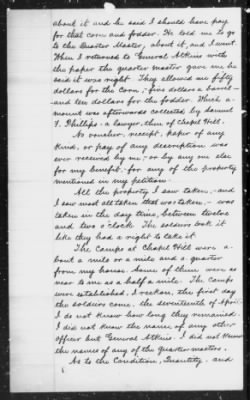 about it and he said I should have pay
for that corn and fodder. He told me to go
to the Quarter Master, about it, and I went
When I returned to General Atkins with
the paper the quarter master gave me he
said it was right. They allowed me fifty
dollars for the Corn,; five dollars a barrel-
and ten dollars for the fodder. Which a-
mount was afterwards collected by Samuel
F. Phillips, a lawyer, then of Chapel Hill.
No voucher, receipt, paper of any
kind, or pay of any description was
ever received by me, or by any one else
for my benefit, for any of the property
mentioned in my petition.
All the property I saw taken, and
I saw most all taken that was taken, was
taken in the day time, between twelve
and two o'clock. The soldiers took it
like they had a right to take it
The Camps at Chapel Hill were a-
bout a mile or a mile and a quarter
from my house. Some of them were as
near to me as a half a mile. The Camps
were established, I reckon, the first day
the soldiers come, the seventeenth of April.
I do not know how long they remained.
I did not know the name of any other
officer but General Atkins. I did not know
the names of any of the quarter masters.
As to the Condition, Quantity, and